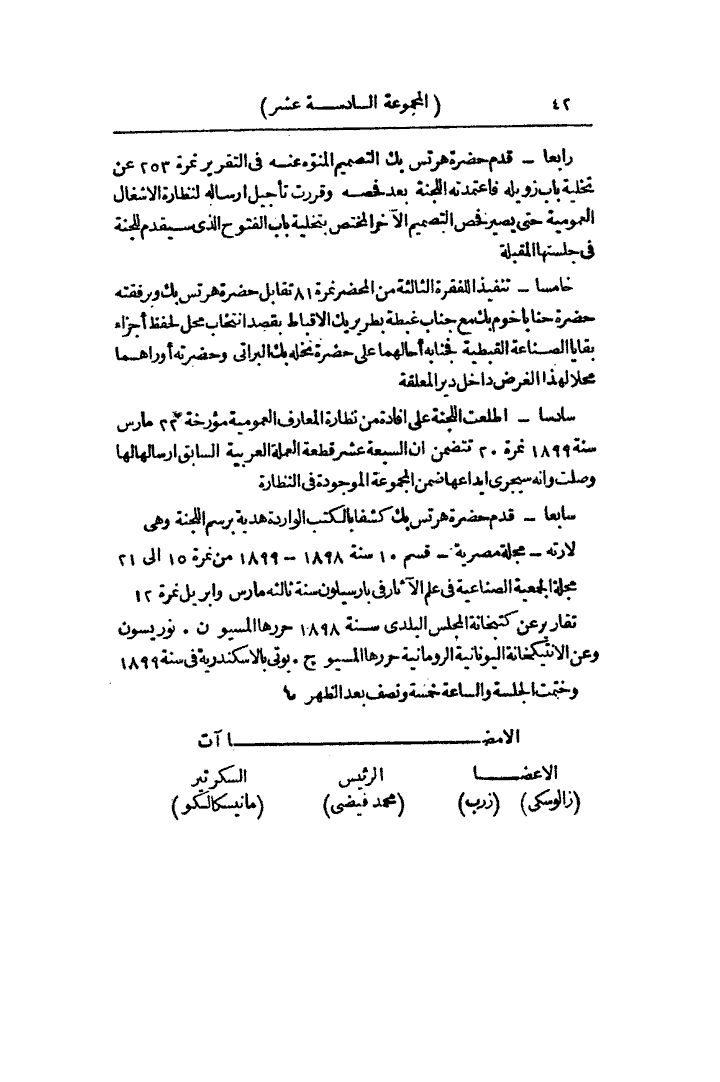 ٤٢ (المجموعة السادسة عشر)
رابعا – قدم حضرة هرتس بك التصميم المنوّه عنه فى التقرير نمرة ٢٥٣ عن
تخلية باب زويله فاعتمدته اللجنة بعد فحصه وقررت تأجيل ارساله لنظارة الاشغال
العمومية حتى يصير فحص التصميم الآخر المختص بتخلية باب الفتوح الذى سيقدم للجنة
فى جلستها المقبلة
خامسا – تنفيذا للفقرة الثالثة من المحضر نمرة ٨١ تقابل حضرة هرتس بك وبرفقته
حضرة حنا باخوم بك مع جناب غبطة بطريرك الاقباط بقصد انتخاب محل لحفظ أجزاء
بقايا الصناعة القبطية فجنابه أحالهما على حضرة نخله بك البراتى وحضرته أوراهما
محلا لهذا الغرض داخل دير المعلقة
سادسا – اطلعت اللجنة على افادة من نظارة المعارف العمومية مؤرخة ٢٣ مارس
سنة ١٨٩٩ نمرة ٢٠ تتضمن ان السبعة عشر قطعة العملة العربية السابق ارسالها لها
وصلت وانه سيجرى ايداعها ضمن المجموعة الموجودة فى النظارة
سابعا – قدم حضرة هرتس بك كشفا بالكتب الواردة هدية برسم اللجنة وهى
لارته – مجلة مصرية – قسم ١٠ سنة ١٨٩٨ – ١٨٩٩ من نمرة ١٥ الى ٢١
مجلة الجمعية الصناعية فى علم الآثار فى بارسيلون سنة ثالثه مارس وابريل نمرة ١٢
تقارير عن كتبخانة المجلس البلدى سنة ١٨٩٨ حررها المسيو ن . نوريسون
وعن الانتيكخانة اليونانية الرومانية حررها المسيو ج . بوتى بالاسكندرية فى سنة ١٨٩٩
وختمت الجلسة والساعة خمسة ونصف بعد الظهر
الامضاآت
الاعضا الرئيس السكرتير
(زالوسكى) (زرب) (محمد فيضى) (مانيسكالكو)